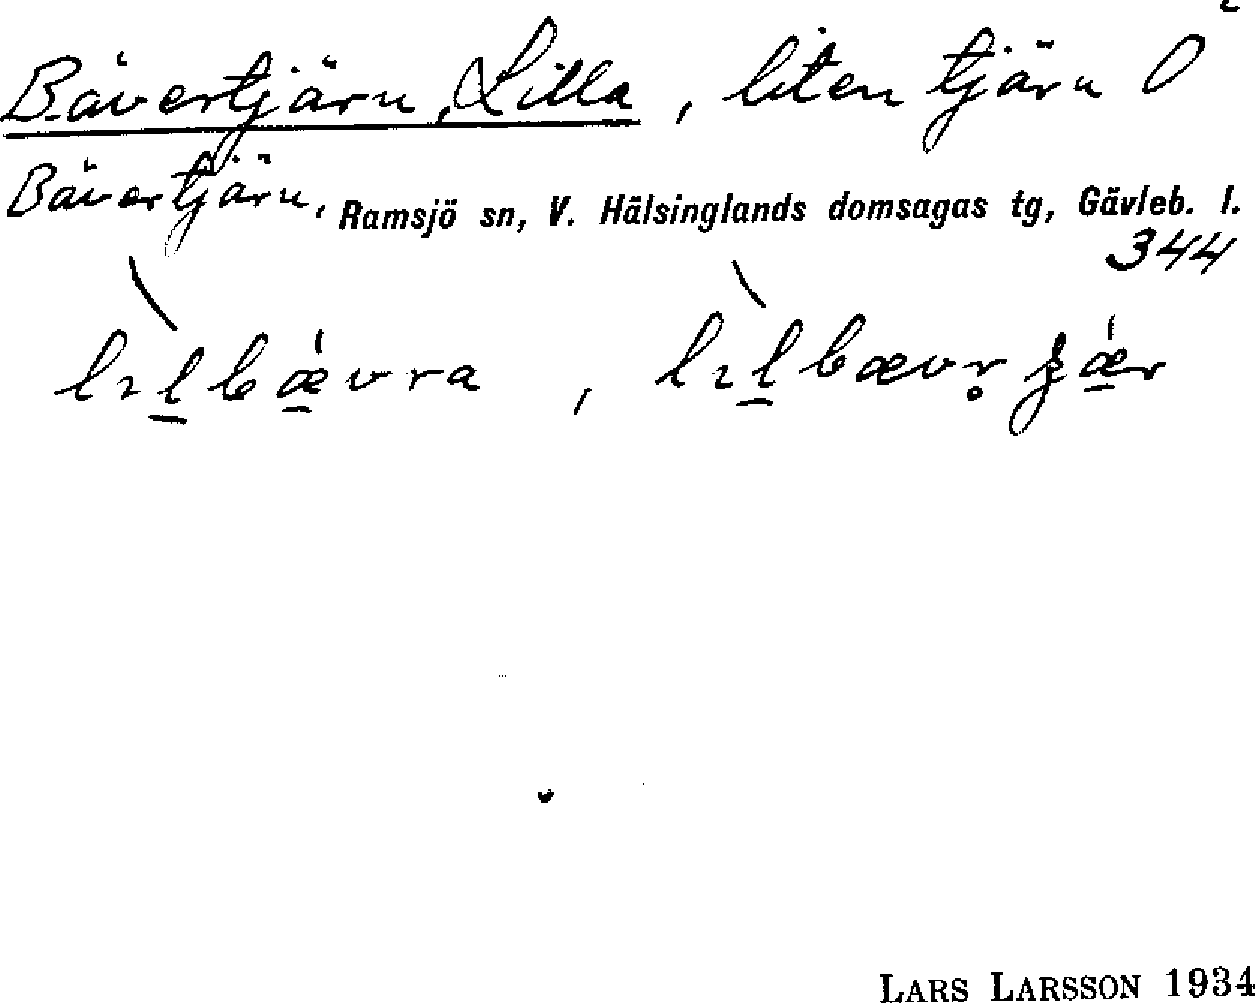 Bävertjärn, Lilla, liten tjärn O
Bävertjärn, Ramsjö sn, V. Hälsinglands domsagas tg, Gävleb. l.
344
LARS LARSSON 1934